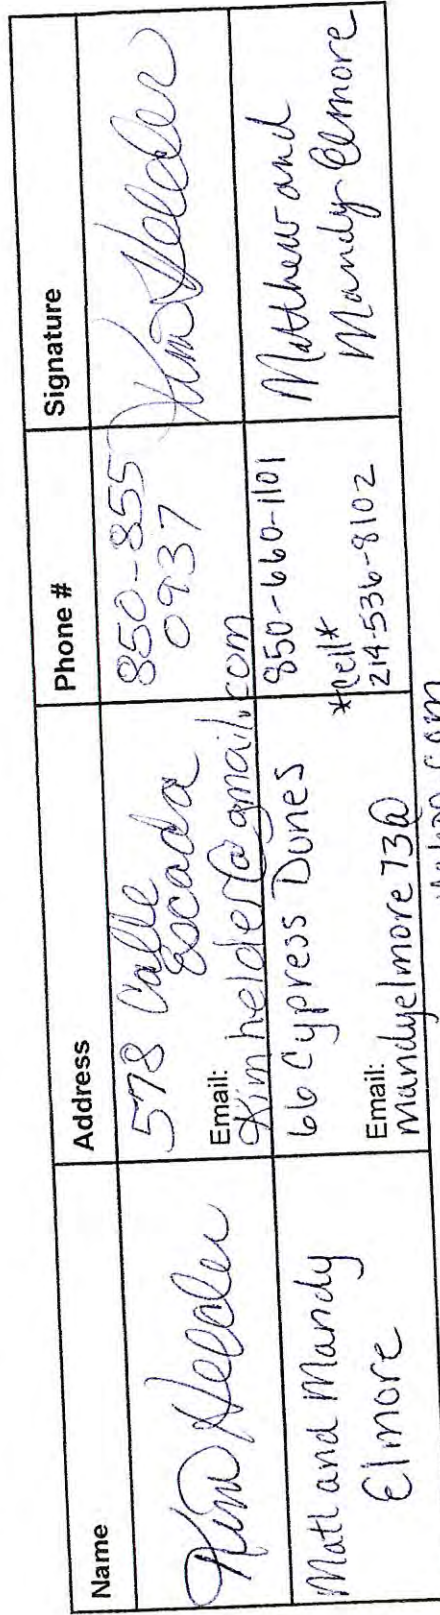 Name
Address
Phone #
Signature
Kim Helder
578 Calle
Escada
Email:
Kimhelder@gmail.com
850-855
0937
Kim Helder
Matt and Mandy
Elmore
66 Cypress Dunes
Email:
mandyelmore73@
yahoo.com
850-660-1101
*cell*
214-536-8102
Matthew and
Mandy Elmore